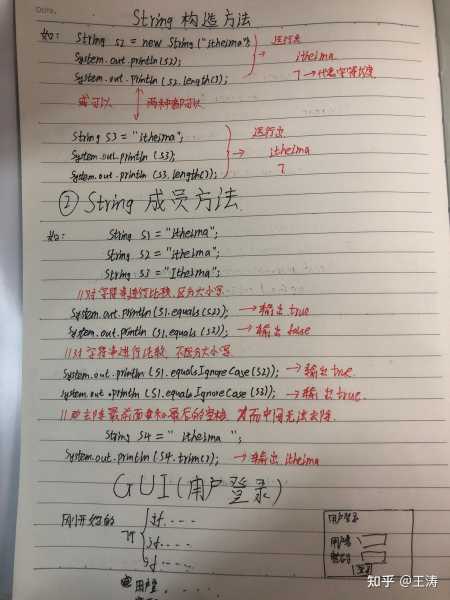 Date.
String 构造方法
如: String s2 = new String("itheima"); 运行出
System.out.println(s2); → itheima
System.out.println(s2.length()); 7 →代表字符长度
或可以 两种都可以
String s3 = "itheima"; 运行出
System.out.println(s3); → itheima
System.out.println(s3.length()); 7
② String 成员方法
如: String s1 = "itheima";
String s2 = "itheima";
String s3 = "Itheima";
//对字符串进行比较,区分大小写
System.out.println(s1.equals(s2)); →输出 true
System.out.println(s1.equals(s3)); →输出 false
//对字符串进行比较 不区分大小写
System.out.println(s1.equalsIgnoreCase(s2)); →输出 true
System.out.println(s1.equalsIgnoreCase(s3)); →输出 true.
去除最前面和最后的空格 其而中间无法去除.
String s4 = " itheima ";
System.out.println(s4.trim()); →输出 itheima
GUI(用户登录)
刚开始的 jf.....
jf....
jf....
用户登录
用户名
密码
登录
知乎 @王涛